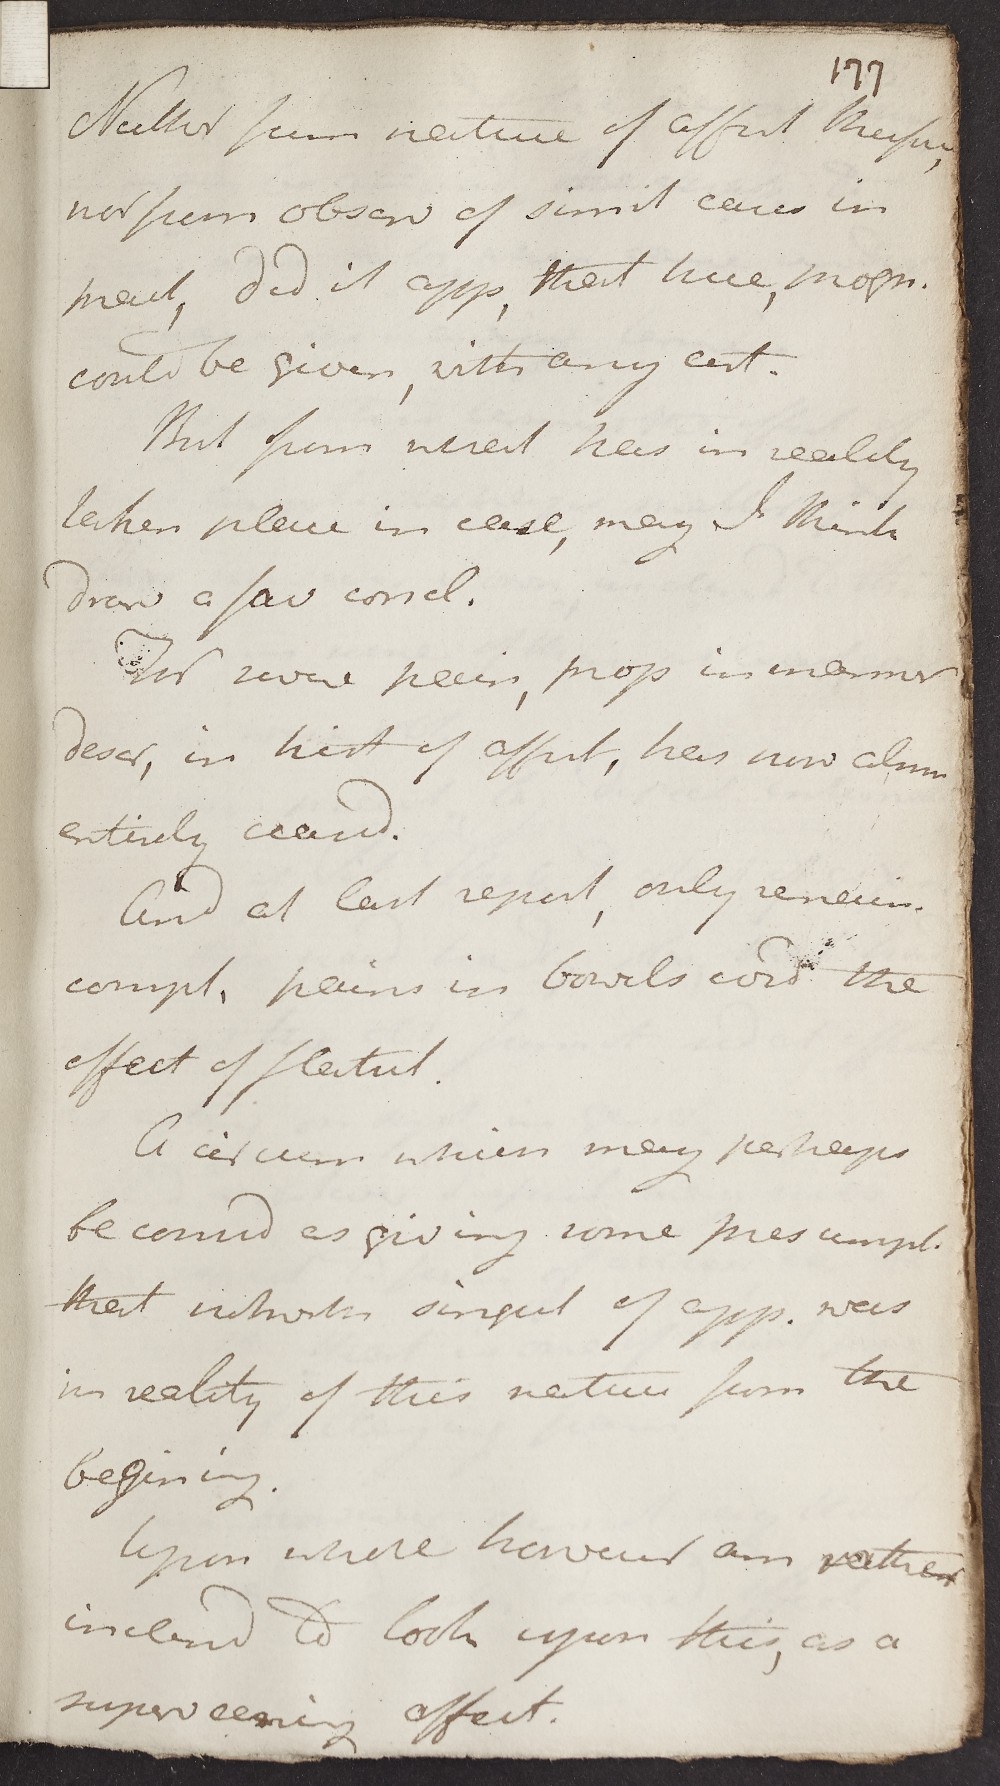 177
Neither from nature of affect therefore,
nor from observ of simil cases in
pract, did it app, that here, progn.
could be given, with any cert.
But from what has in reality
taken place in case, may I think
draw a fav concl.
For severe pain, prop in manner
descr, in hist of affect, has now almo
entirely ceasd.
And at last report, only remain.
compl, pains in bowels cons'd the
effect of flatul.
A circum which may perhaps
be consid as giving some presumpt.
that whole singul of app. was
in reality of this nature from the
begining.
Upon whole however am rather
inclend to look upon this, as a
superveening affect.